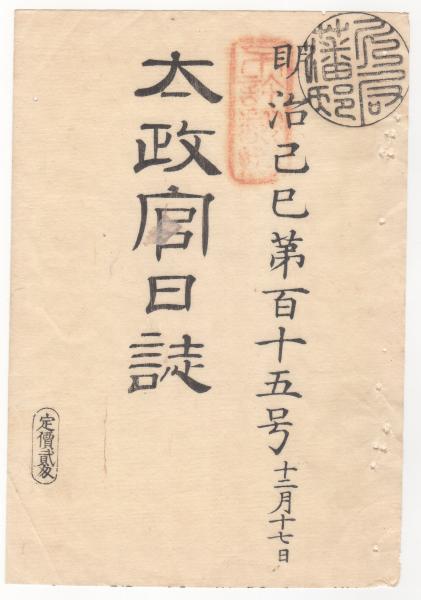 明治己巳第百十五号 十二月十七日
太政官日誌
定價貳匁